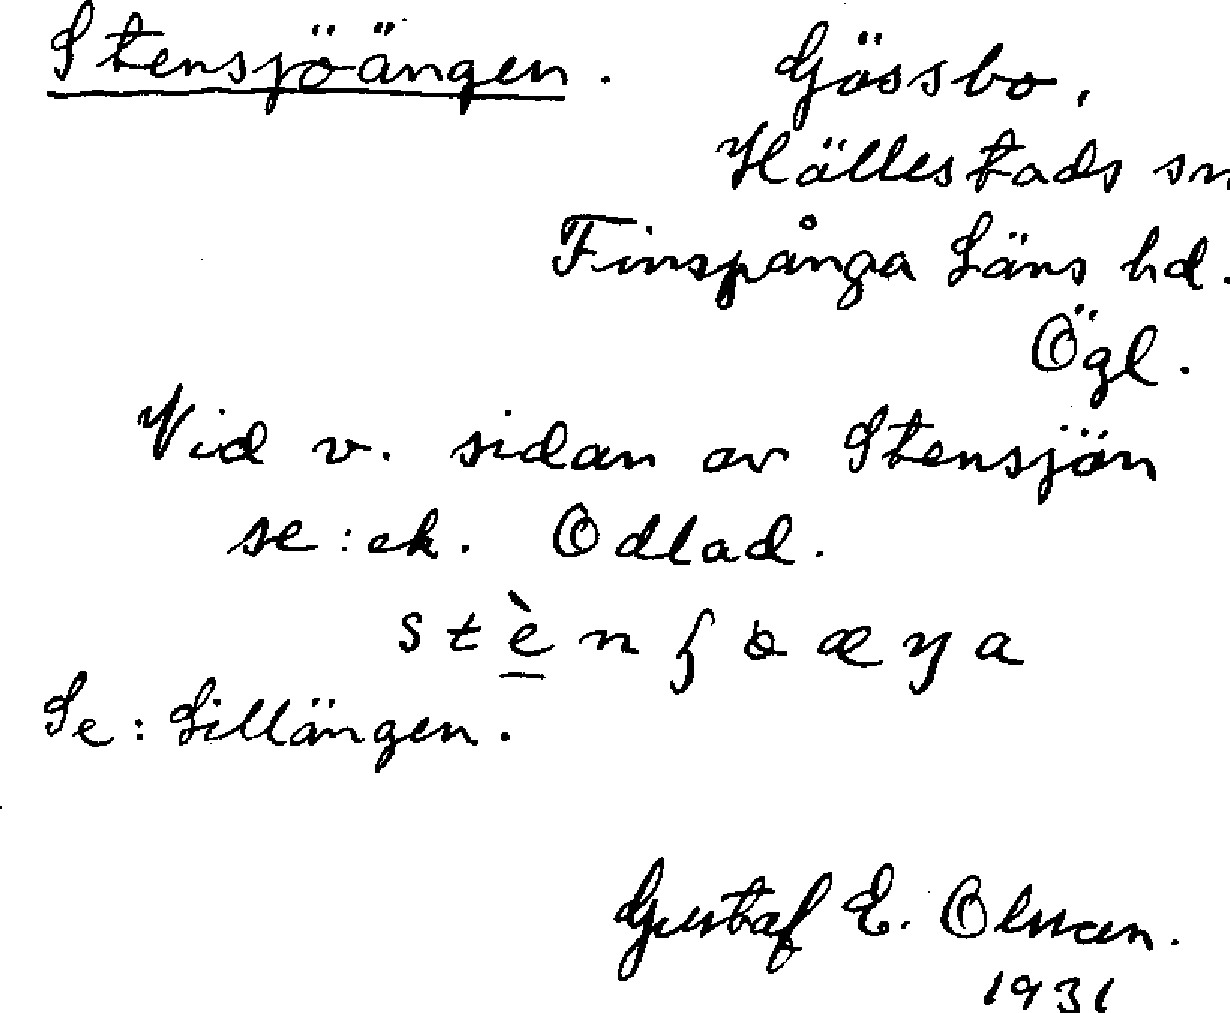 Stensjöängen. Gössbo,
Hällestads sn
Finspånga Läns hd.
Ögl.
Vid v. sidan av Stensjön
se: ek. Odlad.
Se: Lillängen.
Gustaf E. Olsson.
1931